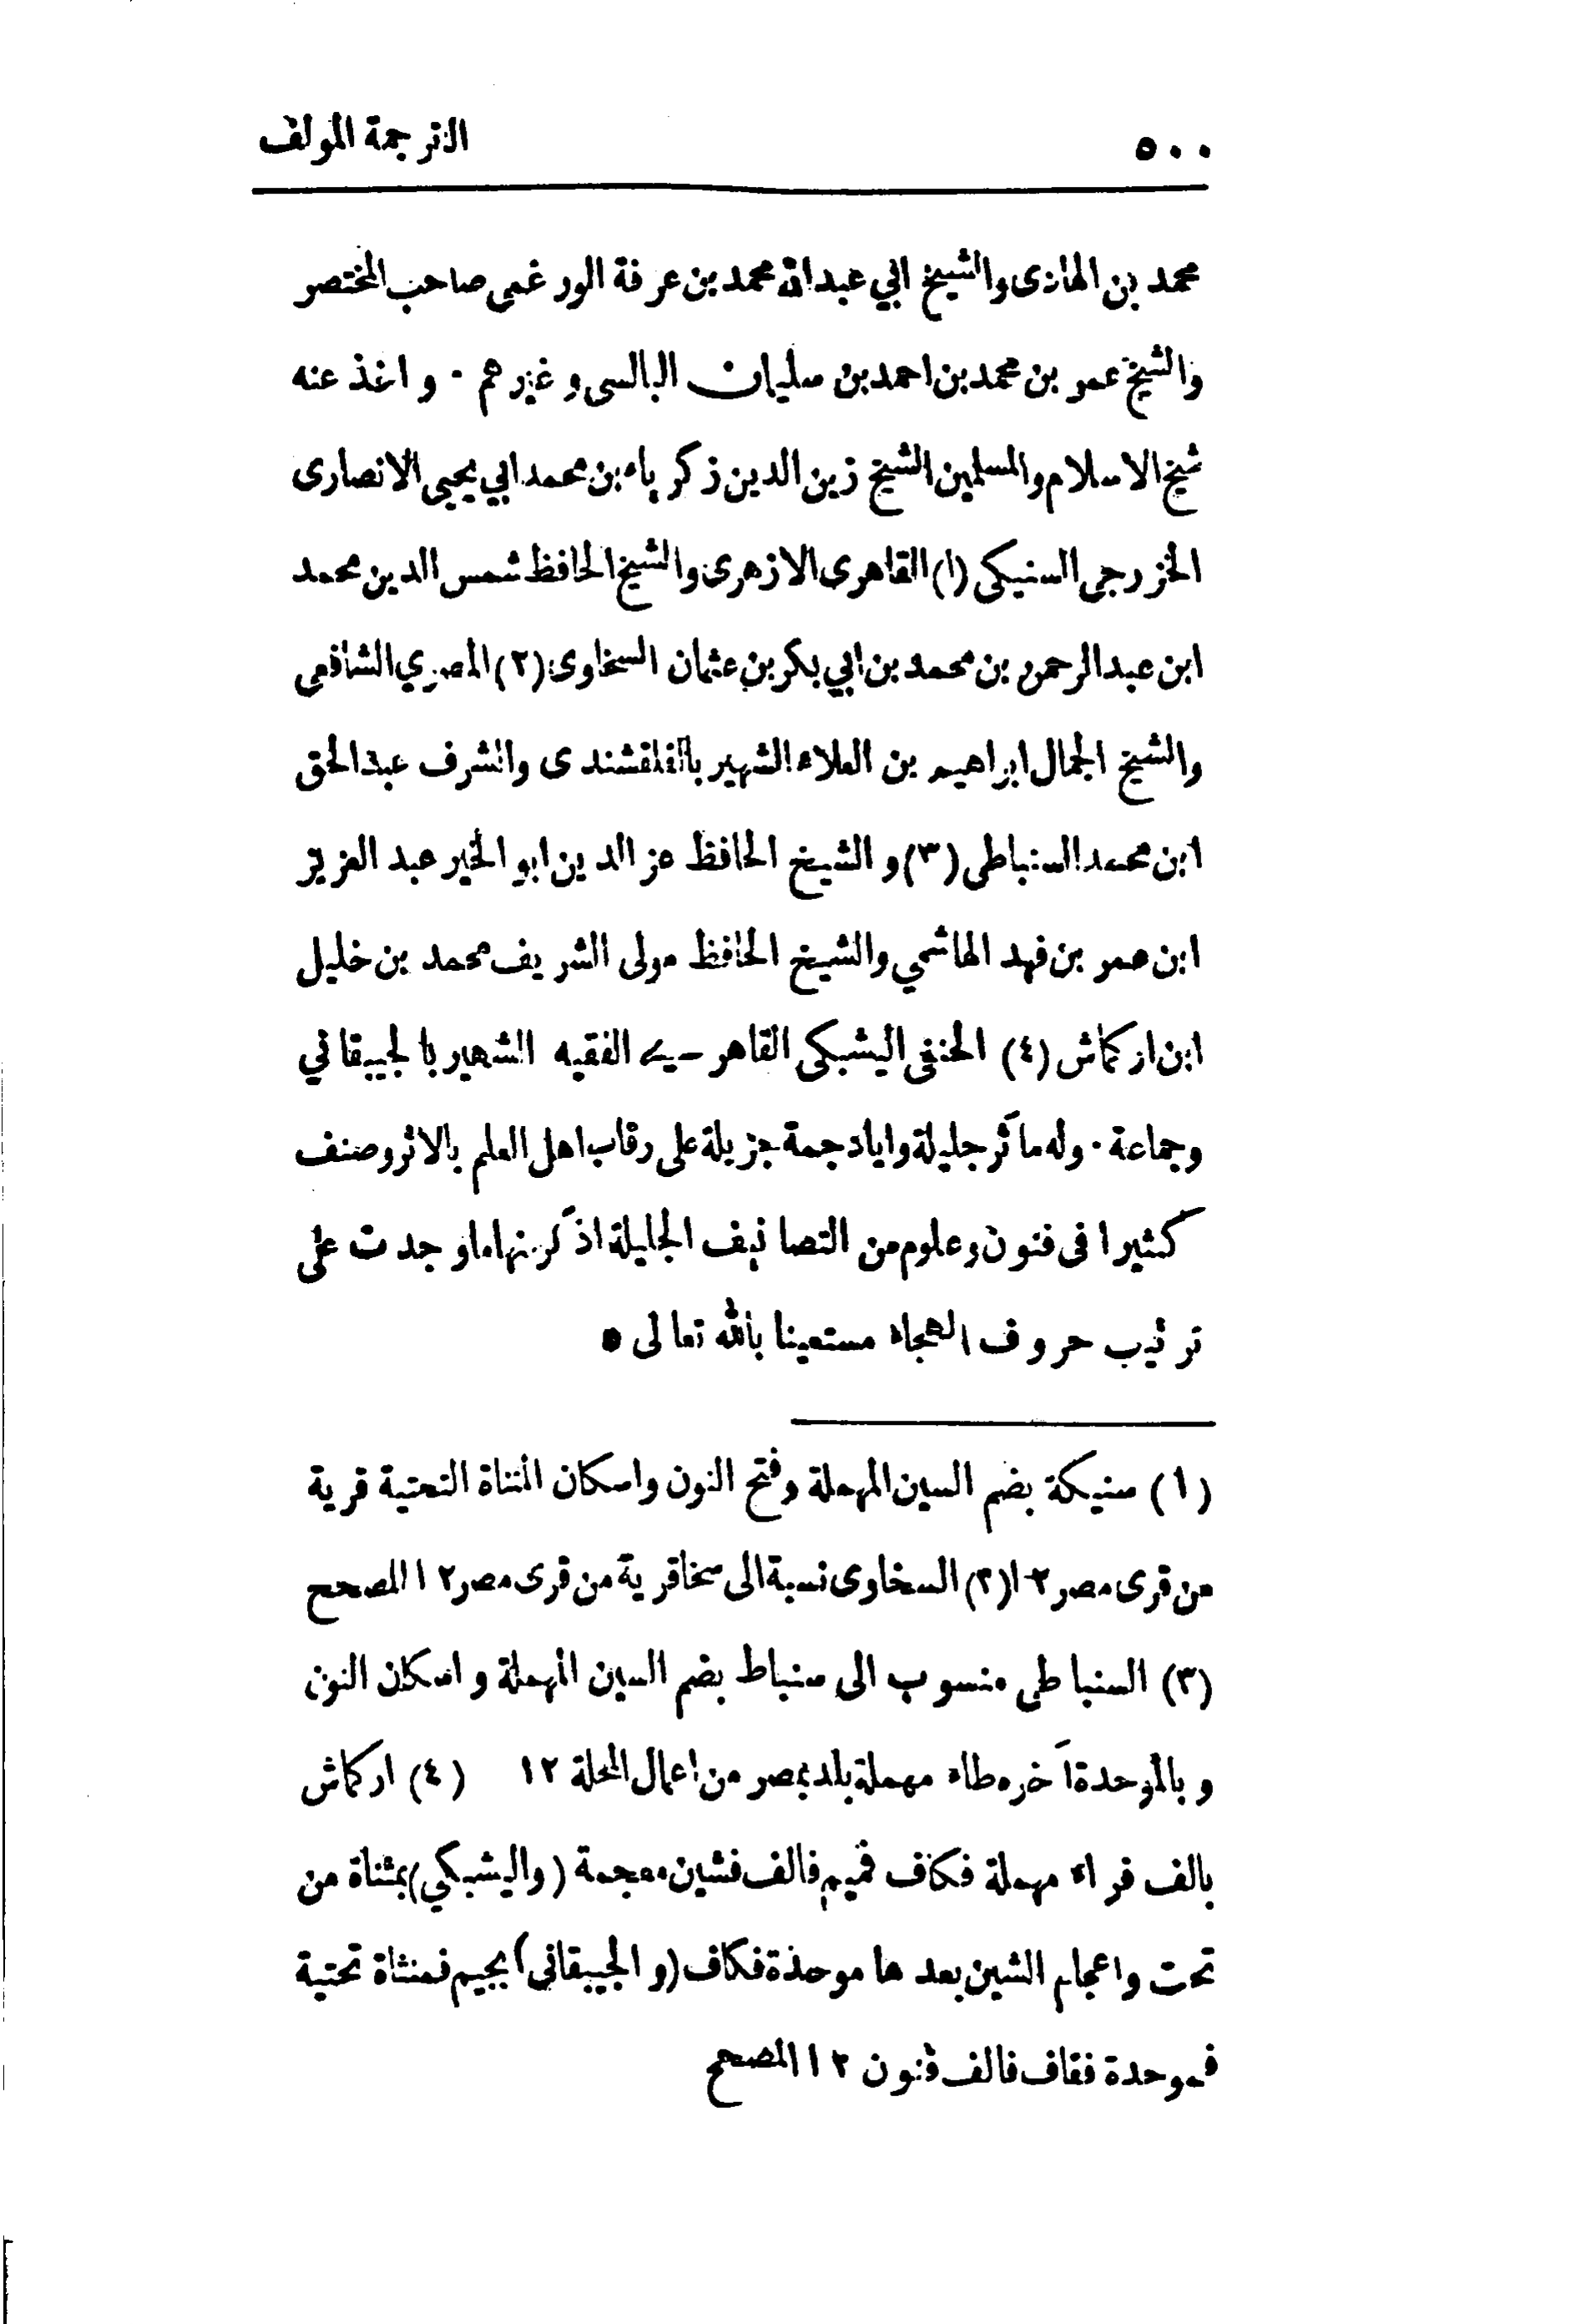 ٥٠٠ الترجمة المولف
محمد بن الهازى والشيخ ابي عبدالله محمد بن عرفة الورغمى صاحب المختصر
والشيخ عمر بن محمد بن احمد بن سليمان البالسى وغيرهم ٠ واخذ عنه
شيخ الاسلام والمسلمين الشيخ زين الدين زكرياء بن محمد ابي يحيى الانصارى
الخزرجى السنيكى (١) القاهرى الازهرى والشيخ الحافظ شمس الدين محمد
ابن عبدالرحمن بن محمد بن ابي بكر بن عثمان السخاوى (٢) المصري الشافعى
والشيخ الجمال ابراهيم بن العلاء الشهير بالقلقشندى والشرف عبدالحق
ابن محمد السنباطى (٣) و الشيخ الحافظ عز الدين ابو الخير عبد العزيز
ابن عمر بن فهد الهاشمي والشيخ الحافظ مولى الشريف محمد بن خليل
ابن اركماش (٤) الحنفى اليشبكى القاهرے الفقيه الشهير بالجيبقاني
وجماعة ٠ وله مآثر جليلة واياد جمة جزيلة على رقاب اهل العلم بالاثر وصنف
كثيرا فى فنون وعلوم من التصانيف الجليلة اذكر منها ما وجدت على
ترتيب حروف الهجاء مستعينا بالله تعالى ٥
(١) سنيكة بضم السين المهملة وفتح النون واسكان المثناة التحتية قرية
من قرى مصر ١٢ (٢) السخاوى نسبة الى سخا قرية من قرى مصر ١٢ المصحح
(٣) السنباطى منسوب الى سنباط بضم السين المهملة و اسكان النون
و بالموحدة آخره طاء مهملة بلد بمصر من اعمال المحلة ١٢ (٤) اركماش
بالف فراء مهملة فكاف فميم فالف فشين معجمة (واليشبكي) بمثناة من
تحت واعجام الشين بعدها موحدة فكاف (و الجيبقاني) بجيم فمثناة تحتية
فموحدة فقاف فالف فنون ١٢ المصحح